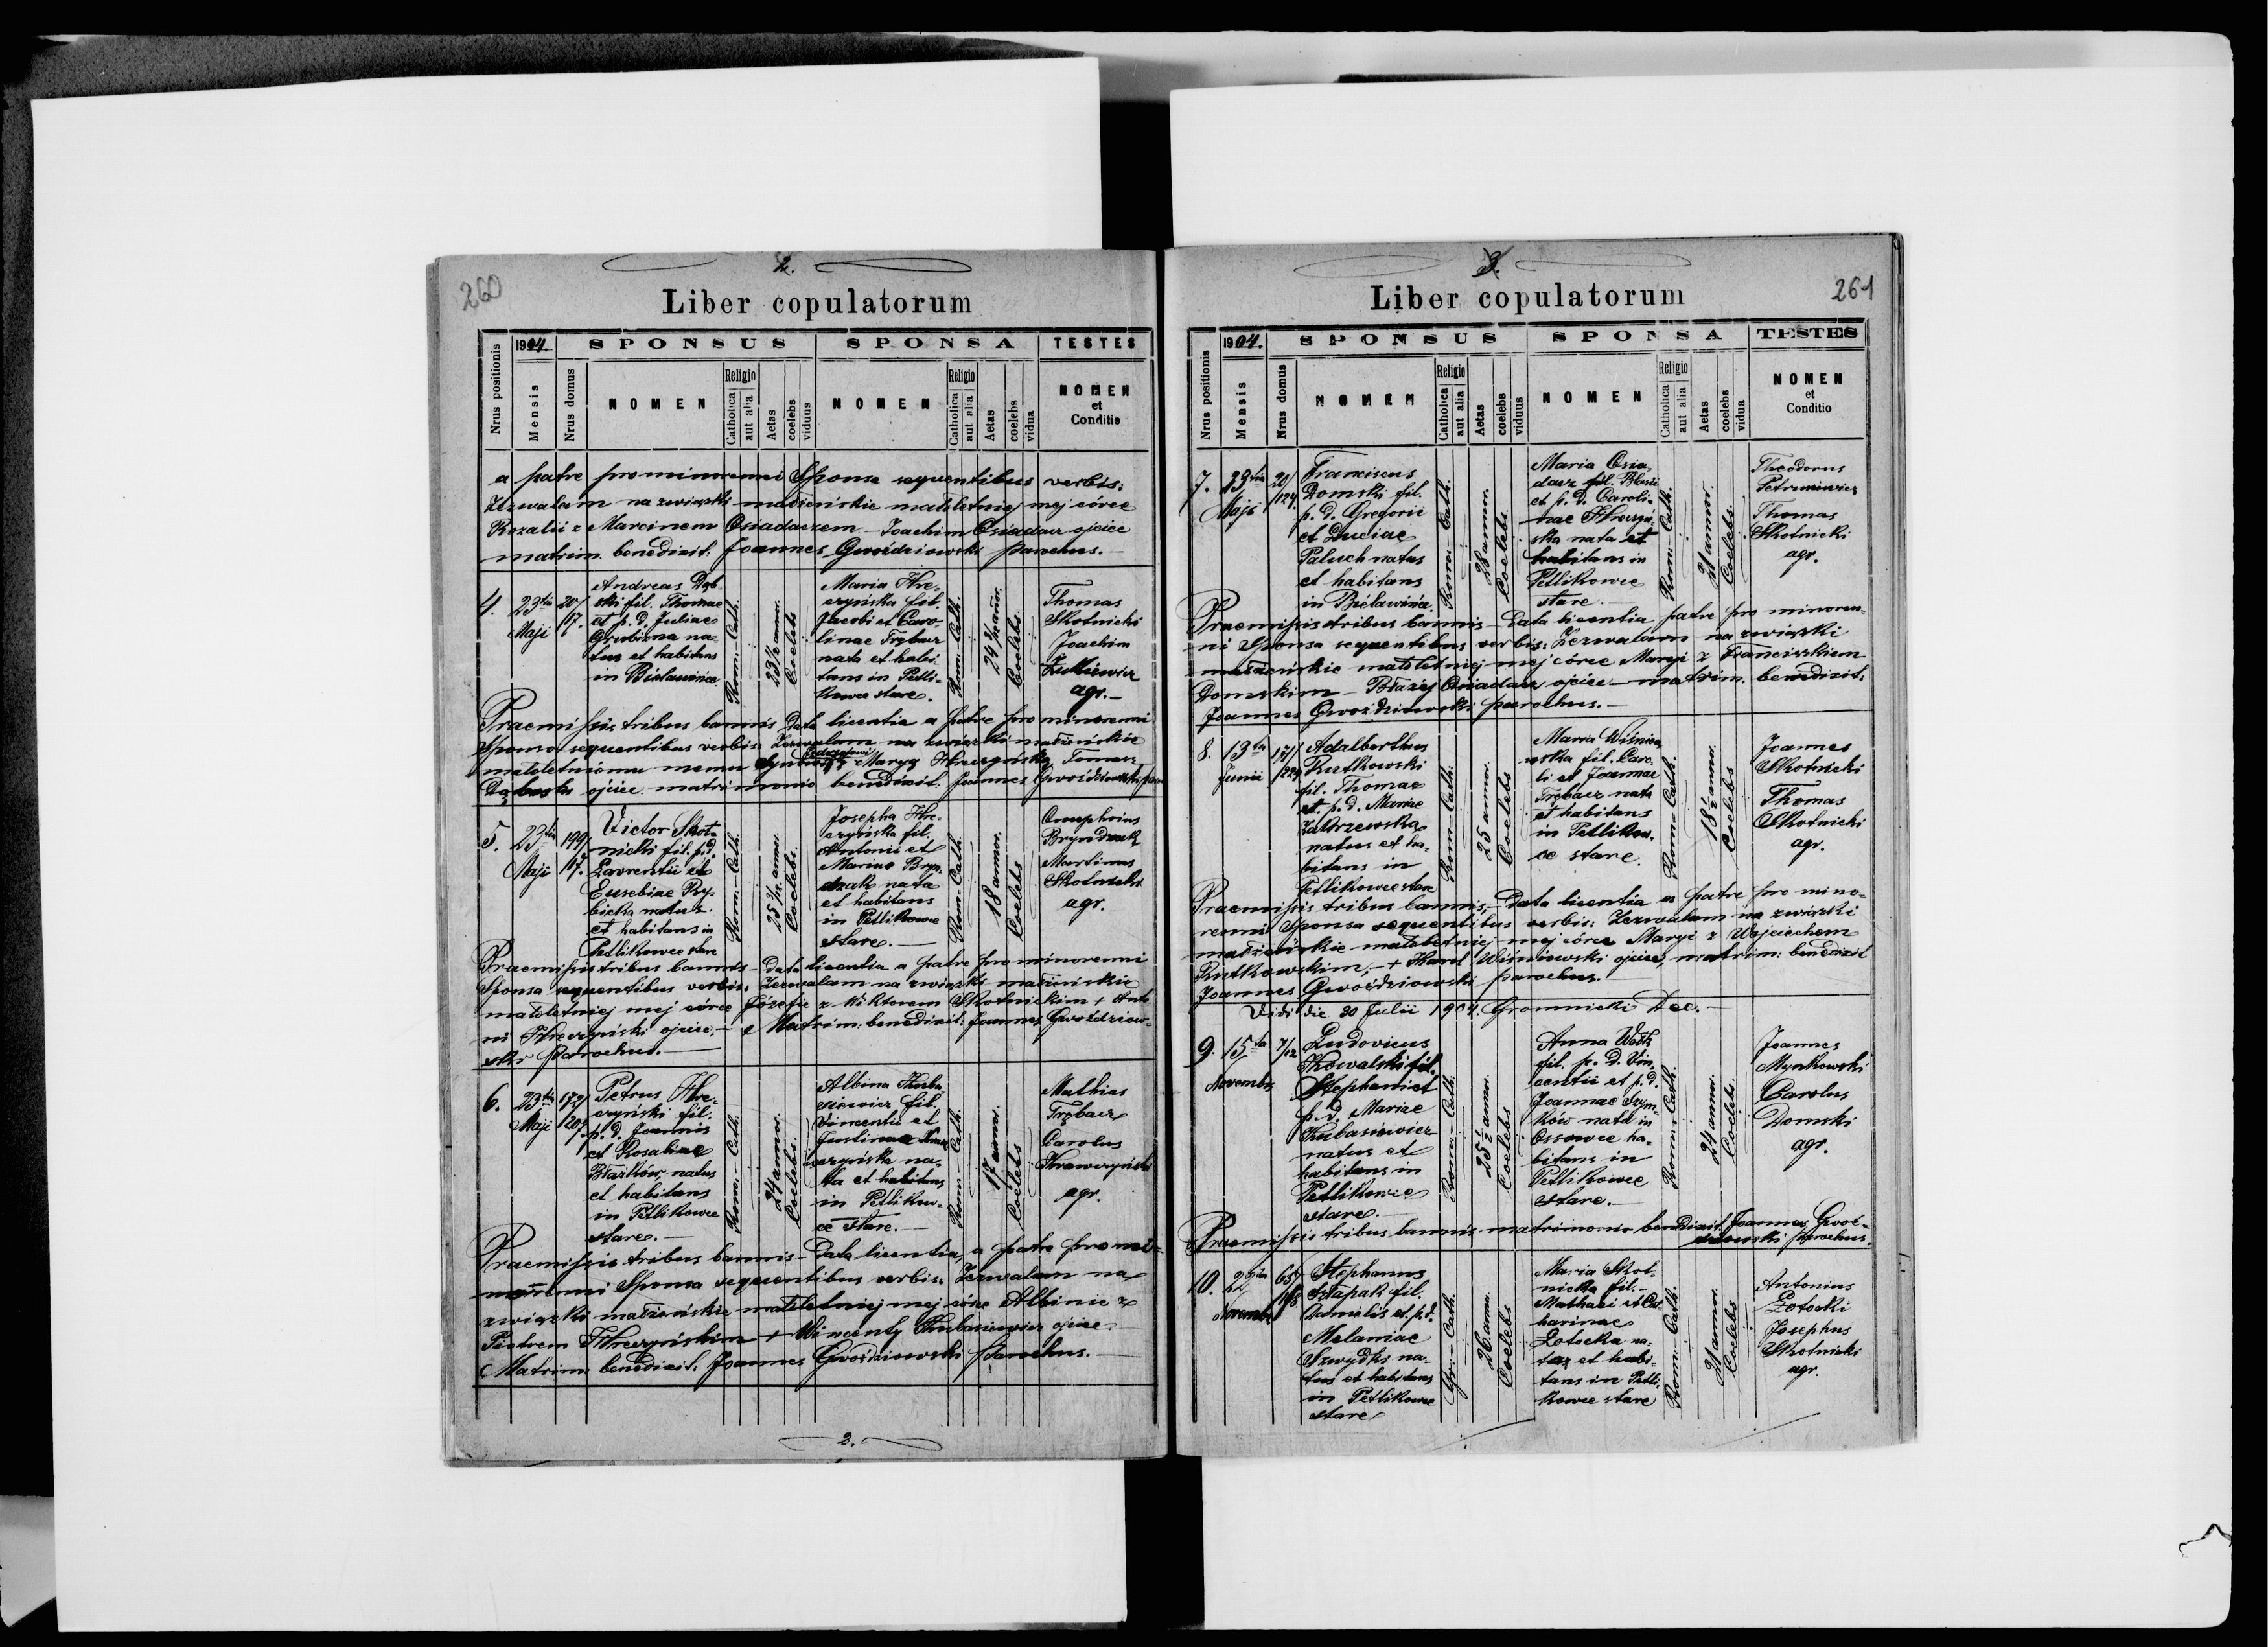 260
2.
Liber copulatorum
Nrus positionis
1904.
Mensis
Nrus domus
SPONSUS
NOMEN
Religio
Catholica
aut alia
Aetas
coelebs
viduus
SPONSA
NOMEN
Religio
Catholica
aut alia
Aetas
coelebs
vidua
TESTES
NOMEN
et
Conditio
a patre pro minorenni Sponse sequentibus verbis:
Zezwalam na związki małżeńskie małoletniej mej córce
Rozalii z Marcinem Osiadaczem Joachim Osiadacz ojciec
matrim. benedixit. Joannes Gwoździowski parochus.
4.
23tia
Maji
20/
17.
Andreas Dąb
ski fil. Thomae
et p. d. Juliae
Grubizna na-
tus et habitans
in Bielawince
Rom. Cath.
23 1/2 annor.
Coelebs
Maria Hre-
czyńska fil.
Jacobi et Caro-
linae Trębacz
nata et habi-
tans in Petli-
kowce stare.
Rom. Cath.
24 annor.
Coelebs.
Thomas
Skotnicki
Joachim
Żułkiewicz
agr.
Praemissis tribus bannis Data licentia a patre pro minorenni
Sponso sequentibus verbis: Zezwalam na związki małżeńskie
małoletniemu memu synowi z Maryą Hreczyńską Tomasz
Dąbski ojciec. matrimonio benedixit. Joannes Gwoździowski par
5.
23tia
Maji
199/
167.
Victor Skot-
nicki fil. p. d.
Lavrentii et
Eusebiae Ry-
bicka natus
et habitans in
Petlikowce stare
Rom. Cath.
25 annor.
Coelebs.
Josepha Hre-
czyńska fil.
Antonii et
Mariae Bryn-
dzak nata
et habitans
in Petlikowce
stare.
Rom. Cath.
18 annor.
Coelebs
Onuphrius
Bryndzak
Martinus
Skotnicki
agr.
Praemissis tribus bannis - Data licentia a patre pro minorenni
Sponsa sequentibus verbis: Zezwalam na związki małżeńskie
małoletniej mej córce Józefie z Wiktorem Skotnickim + Anto
ni Hreczyński ojciec. - Matrim. benedixit: Joannes Gwoździow-
ski parochus.
6.
23tia
Maji
172/
207
Petrus Hre-
czyński fil.
p. d. Joannis
et Rosaliae
Błażków natus
et habitans
in Petlikowce
stare.
Rom. Cath.
24 annor.
Coelebs.
Albina Kuba
siewicz fil.
Vincentii et
Justinae Kraw
czyńska na-
ta et habitans
in Petlikow-
ce stare.
Rom. Cath.
17 annor.
Coelebs
Mathias
Trębacz
Carolus
Krawczyński
agr.
Praemissis tribus bannis - Data licentia, a patre pro mi-
norenni Sponsa sequentibus verbis: Zezwalam na
związki małżeńskie małoletniej mej córce Albinie z
Piotrem Hreczyńskim + Wincenty Kubasiewicz ojciec
Matrim. benedixit: Joannes Gwoździowski parochus.
2.
3.
261
Liber copulatorum
Nrus positionis
1904.
Mensis
Nrus domus
SPONSUS
NOMEN
Religio
Catholica
aut alia
Aetas
coelebs
viduus
SPONSA
NOMEN
Religio
Catholica
aut alia
Aetas
coelebs
vidua
TESTES
NOMEN
et
Conditio
7.
23tia
Maji
20/
124.
Franciscus
Domski fil.
p. d. Gregorii
et Luciae
Paluch natus
et habitans
in Bielawince.
Rom. Cath.
28 annor.
Coelebs
Maria Osia-
dacz fil. Blasii
et p. d. Caroli-
nae Hreczyń-
ska nata et
habitans in
Petlikowce
stare.
Rom. Cath.
21 annor.
Coelebs.
Theodorus
Petruniewicz
Thomas
Skotnicki
agr.
Praemissis tribus bannis - Data licentia patre pro minoren-
ni Sponsa sequentibus verbis: Zezwalam na związki
małżeńskie małoletniej mej córce Maryi z Franciszkiem
Domskim - Błażej Osiadacz ojciec - matrim. benedixit.
Joannes Gwoździowski parochus.
8.
13tia
Junii
171/
224
Adalberthus
Rutkowski
fil. Thomae
et p. d. Mariae
Zakrzewska
natus et ha-
bitans in
Petlikowce stare
Rom. Cath.
25 annor.
Coelebs
Maria Wiśniow
ska fil. Caro-
li et Joannae
Trębacz nata
et habitans
in Petlikow-
ce stare.
Rom. Cath.
18 1/2 annor.
Coelebs
Joannes
Skotnicki
Thomas
Skotnicki
agr.
Praemissis tribus bannis, - Data licentia a patre pro mino-
renni Sponsa sequentibus verbis: Zezwalam na związki
małżeńskie małoletniej mej córce Maryi z Wojciechem
Rutkowskim, - + Karol Wiśniowski ojciec, matrim: benedixit
Joannes Gwoździowski parochus.
Vidi die 30 Julii 1904. Gromnicki Dec.
9.
15ta
Novembr
7/02
Ludovicus
Kowalski fil.
Stephani et
p. d. Mariae
Kubasiewicz
natus et
habitans in
Petlikowce
stare.
Rom. Cath.
25 1/2 annor.
Coelebs
Anna Wołk
fil. p. d. Vin-
centii et p. d.
Joannae Szym-
ków nata in
Ossowce ha-
bitans in
Petlikowce
stare.
Rom. Cath.
24 annor.
Coelebs.
Joannes
Mynkowski
Carolus
Domski
agr.
Praemissis tribus bannis matrimonio benedixit Joannes Gwoź-
dziowski parochus.
10.
22
Novembr
65/
Stephanus
Sztapak fil.
Danielis et p. d.
Melaniae
Szwydki na-
tus et habitans
in Petlikowce
stare
Gr. - Cath.
26 annor.
Coelebs
Maria Skot-
nicka fil. -
Mathaei et Cat
harinae
Łotocka na-
ta et habi-
tans in Petli-
kowce stare
Rom. Cath.
21 annor.
Coelebs
Antonius
Łotocki
Josephus
Skotnicki
agr.